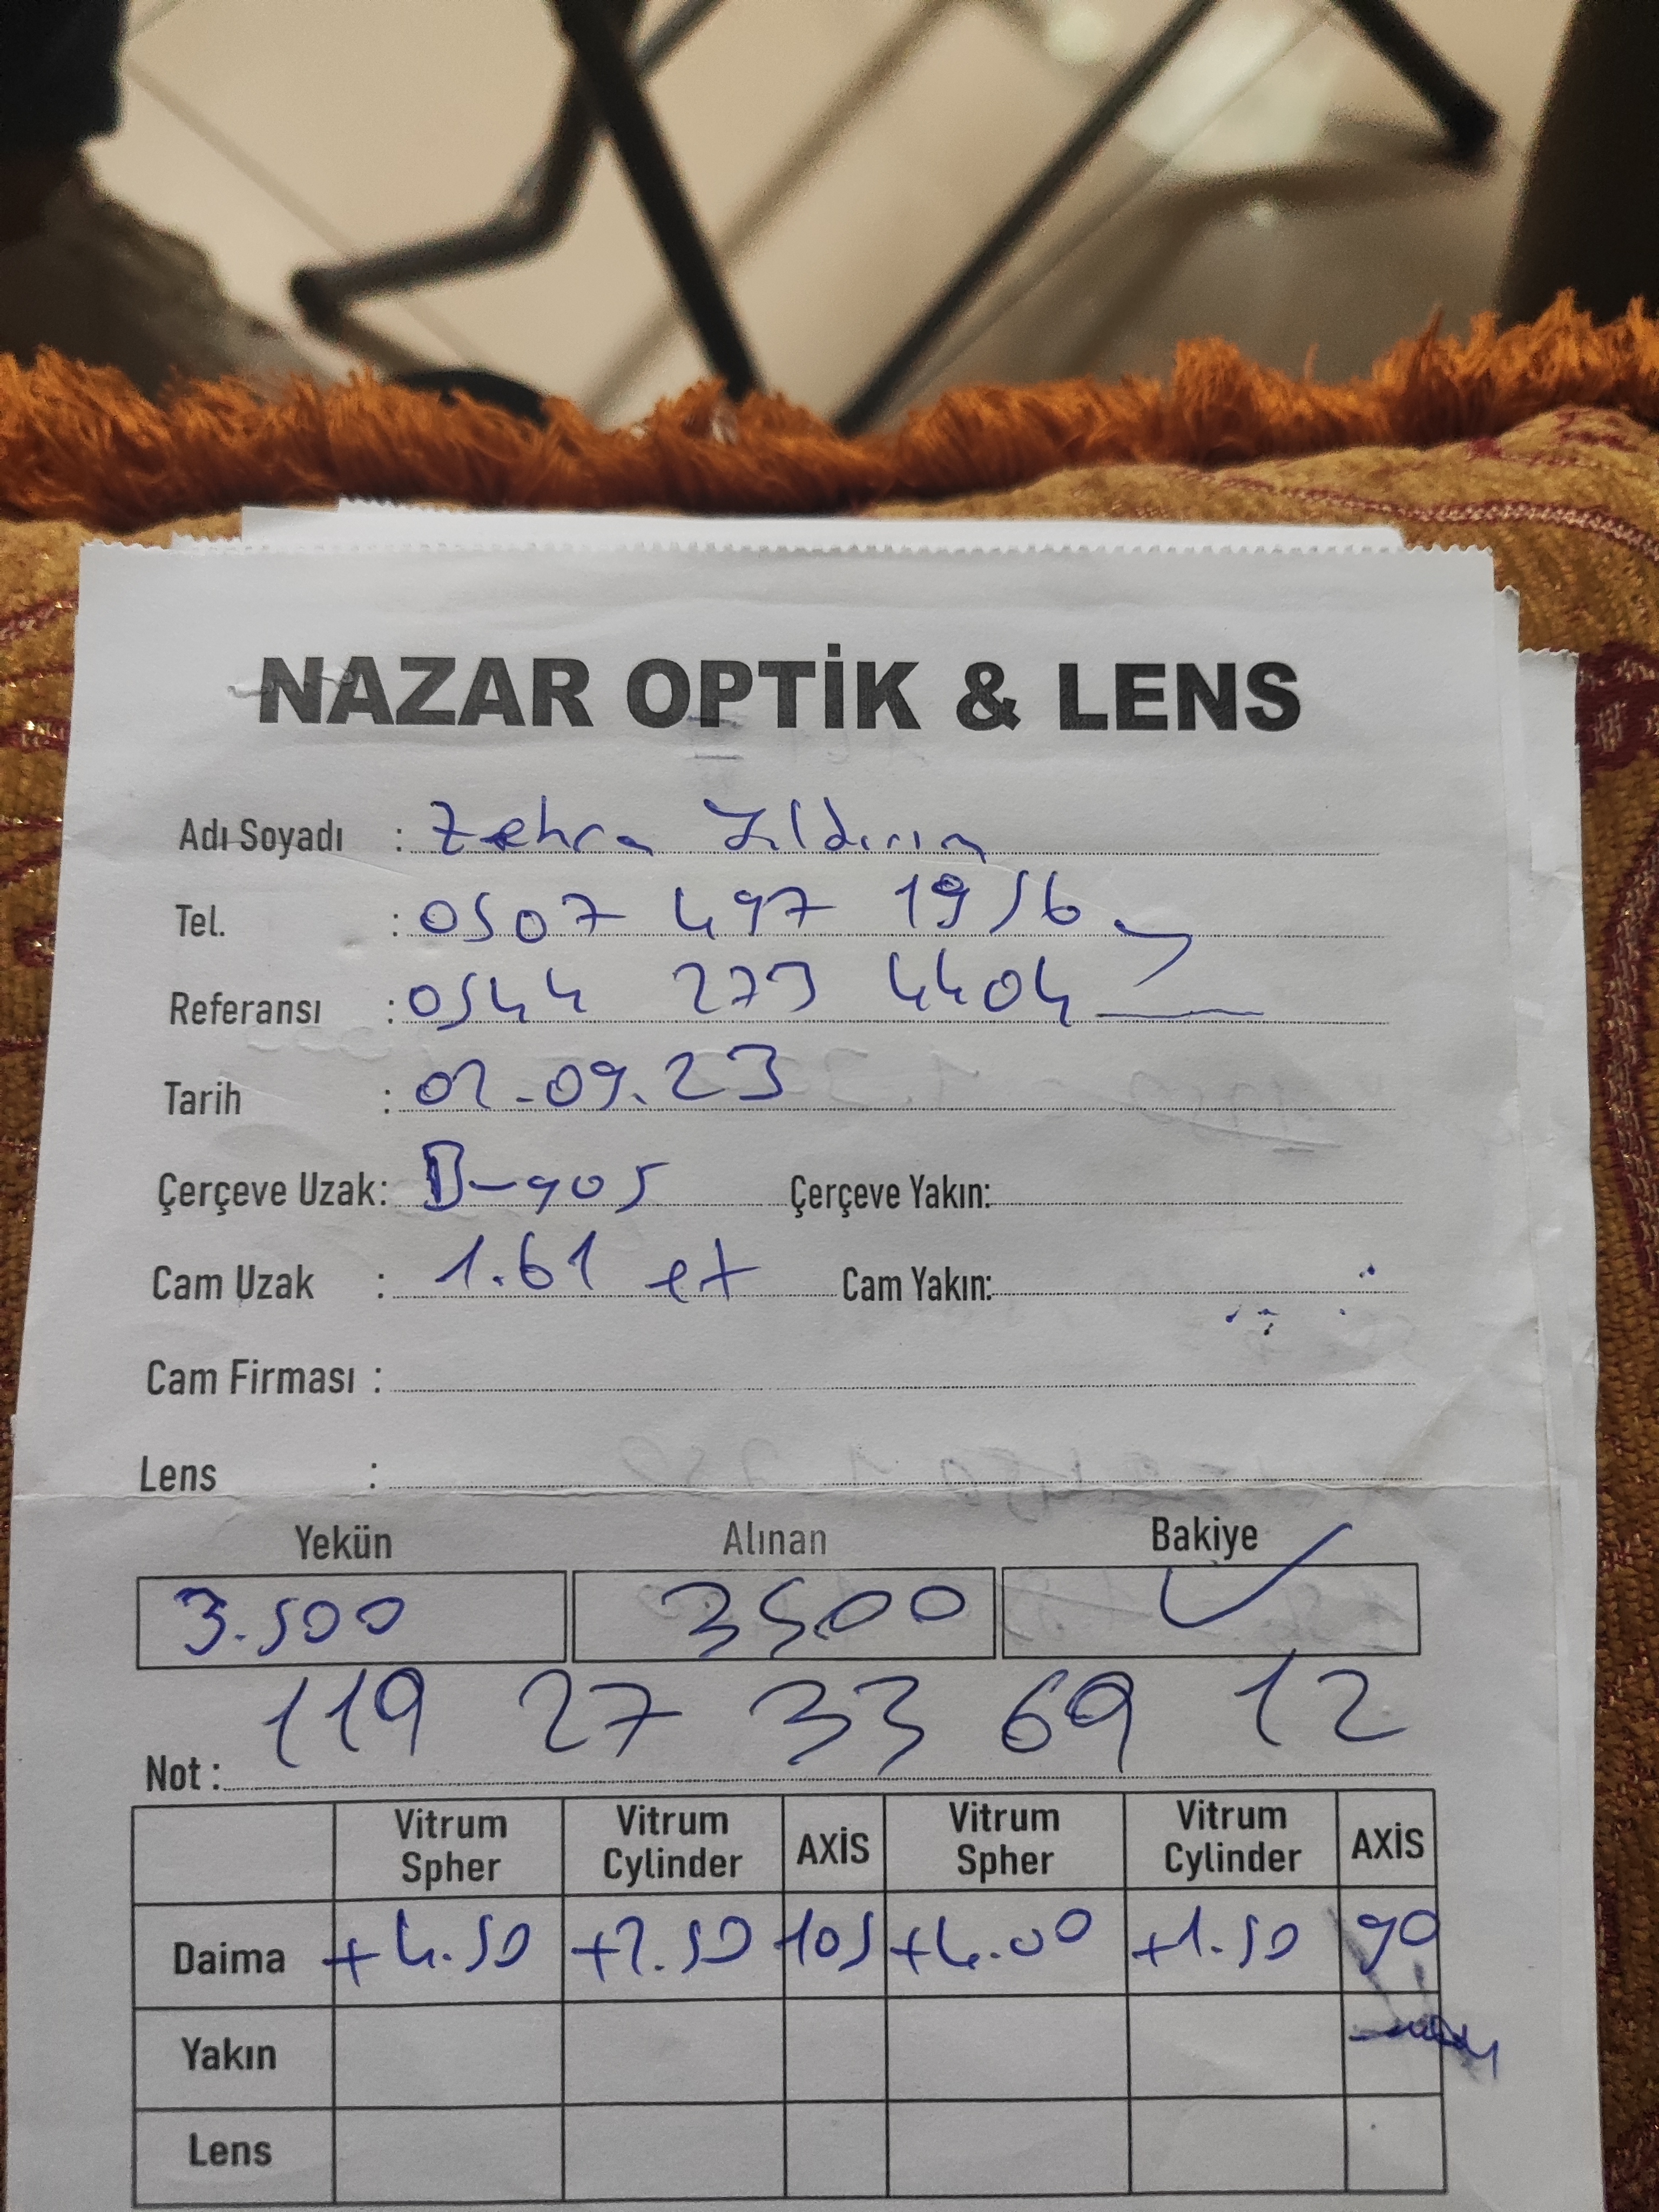 NAZAR OPTİK & LENS
Adı Soyadı : Zehra Yıldırım
Tel. : 0507 497 19 56
Referansı : 0544 273 4404
Tarih : 02.09.23
Çerçeve Uzak: B-905 Çerçeve Yakın:
Cam Uzak : 1.61 et Cam Yakın:
Cam Firması :
Lens :
Yekün Alınan Bakiye
3.500 3500
119 27 33 69 12
Not :
Vitrum Spher Vitrum Cylinder AXİS Vitrum Spher Vitrum Cylinder AXİS
Daima +4.50 +2.50 105 +4.00 +1.50 90
Yakın
Lens